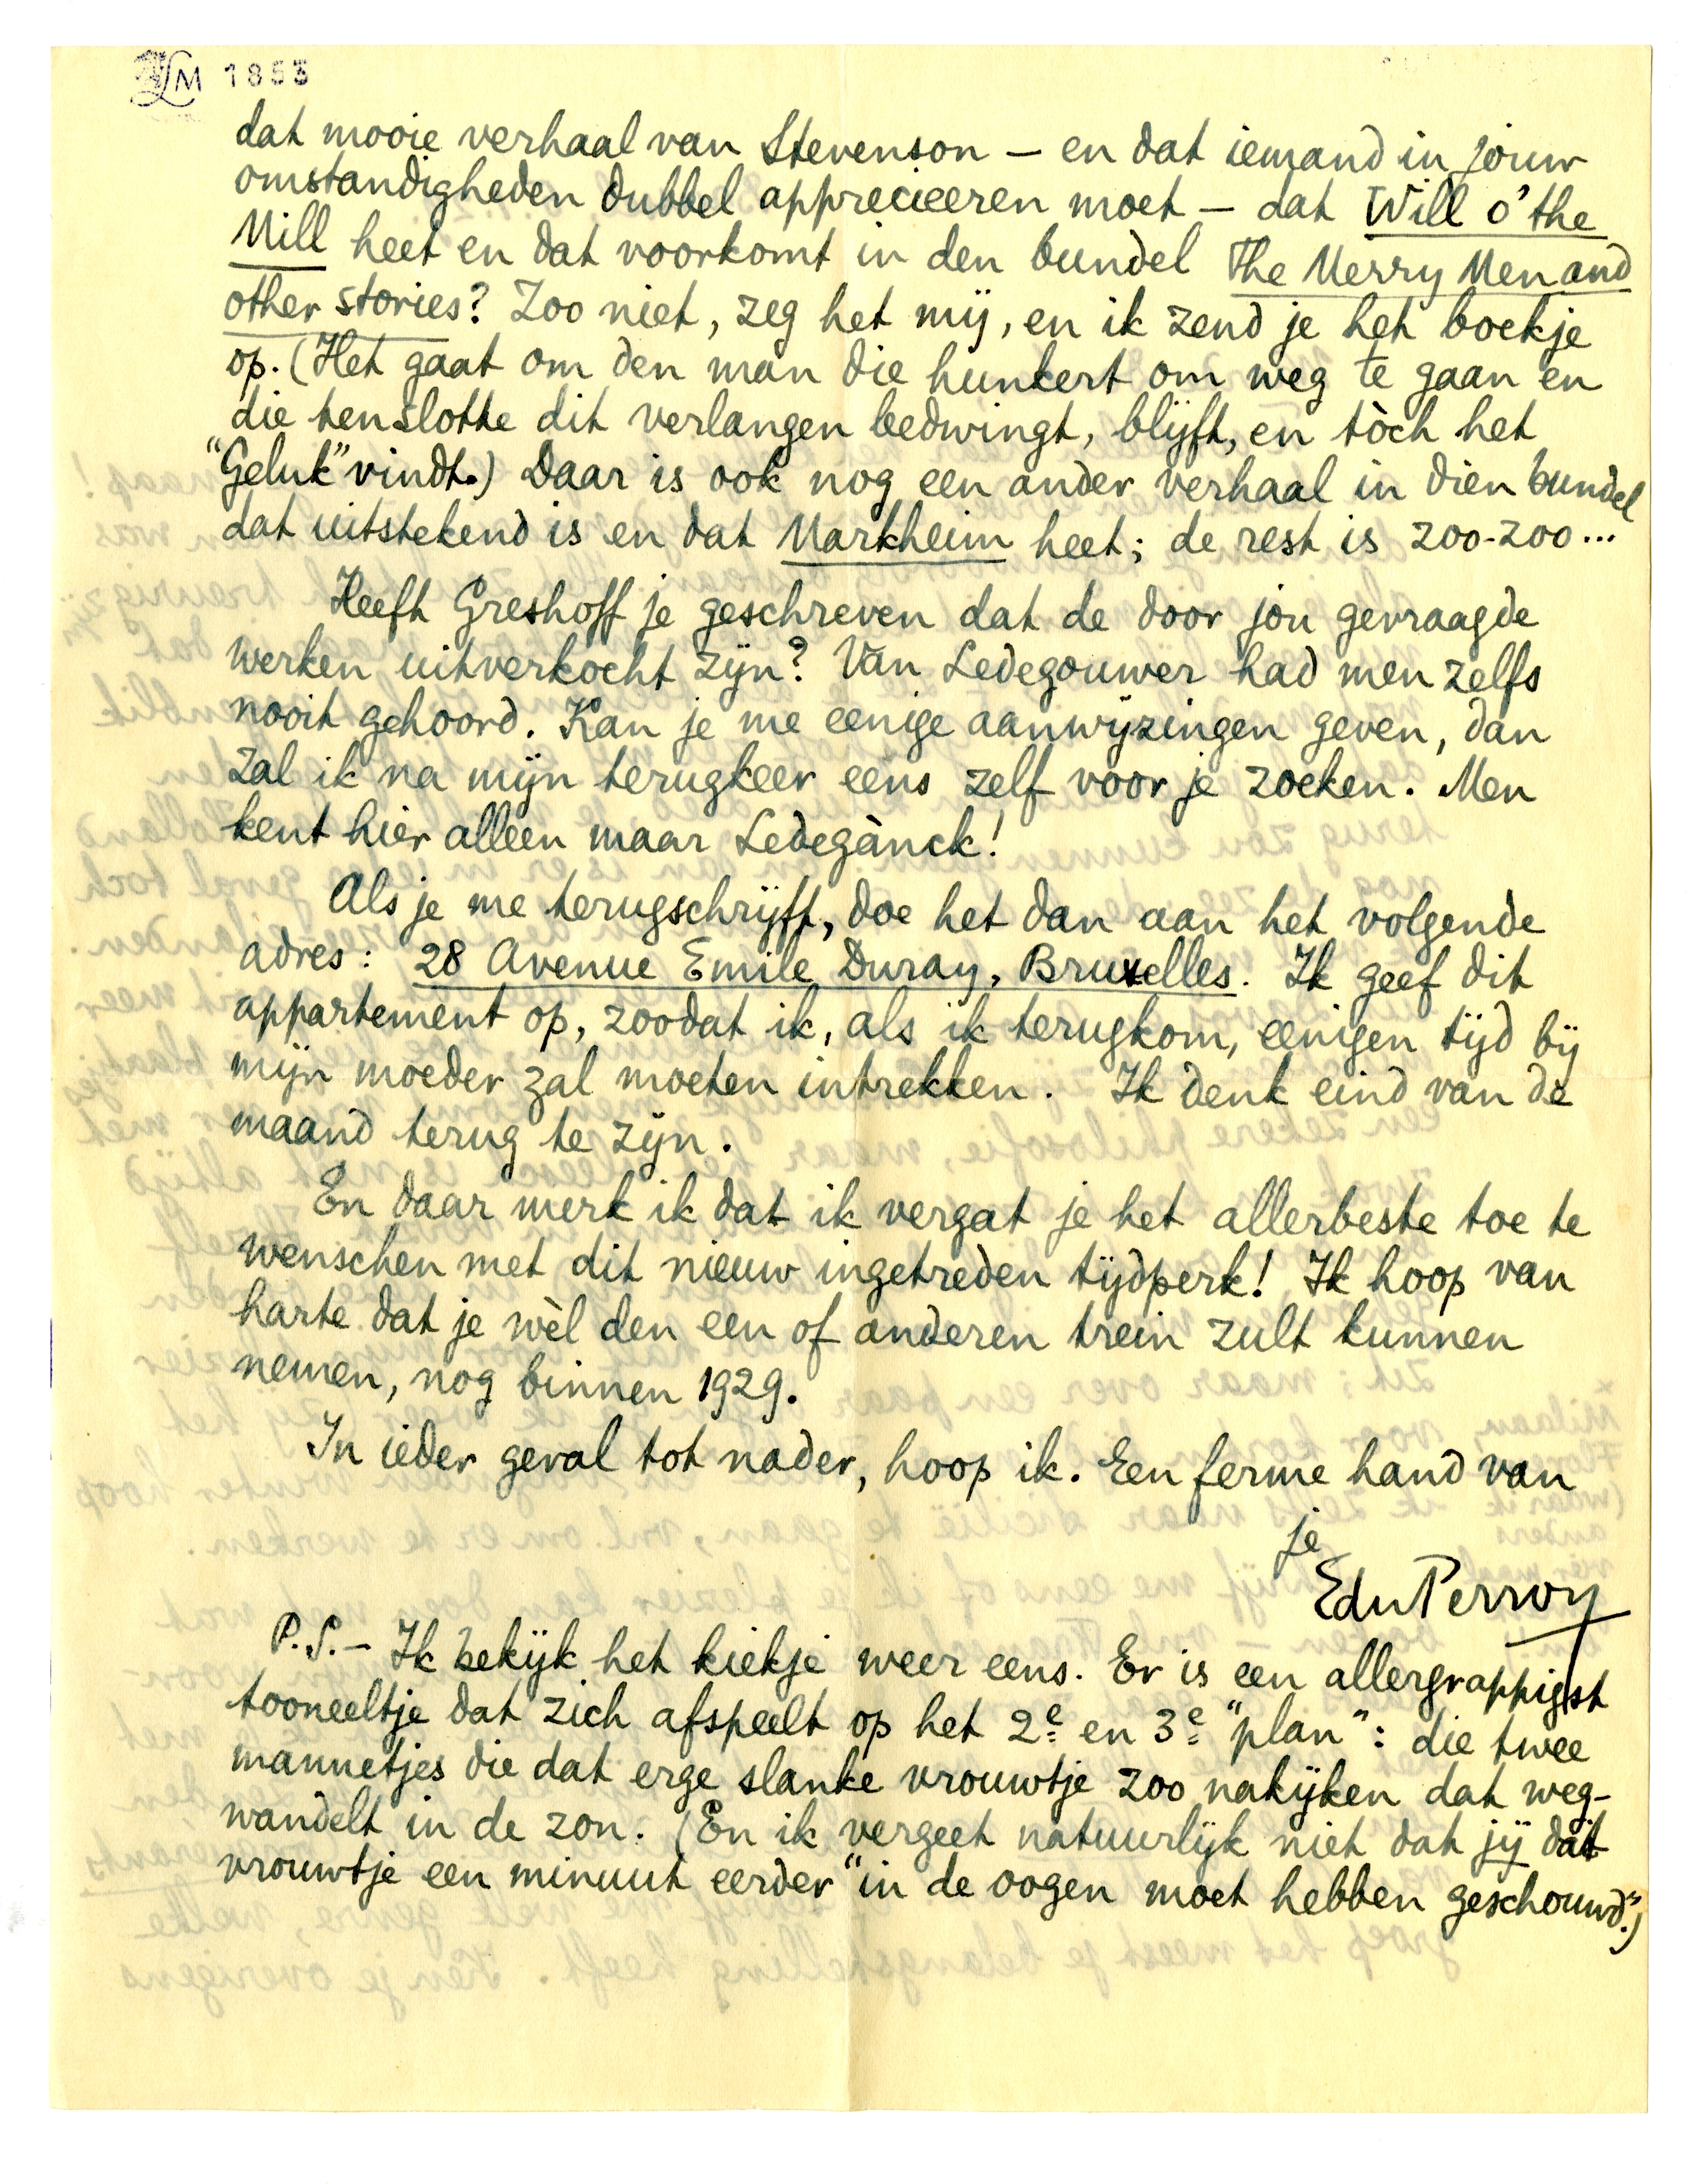 LM 1853
dat mooie verhaal van Stevenson – en dat iemand in jouw
omstandigheden dubbel apprecieeren moet – dat Will o' the
Mill heet en dat voorkomt in den bundel The Merry Men and
other stories? Zoo niet, zeg het mij, en ik zend je het boekje
op. (Het gaat om den man die hunkert om weg te gaan en
die tenslotte dit verlangen bedwingt, blijft, en tòch het
"Geluk" vindt.) Daar is ook nog een ander verhaal in dien bundel
dat uitstekend is en dat Markheim heet; de rest is zoo-zoo...
Heeft Greshoff je geschreven dat de door jou gevraagde
werken uitverkocht zijn? Van Ledegouwer had men zelfs
nooit gehoord. Kan je me eenige aanwijzingen geven, dan
zal ik na mijn terugkeer eens zelf voor je zoeken. Men
kent hier alleen maar Ledegànck!
Als je me terugschrijft, doe het dan aan het volgende
adres: 28 Avenue Emile Duray, Bruxelles. Ik geef dit
appartement op, zoodat ik, als ik terugkom, eenigen tijd bij
mijn moeder zal moeten intrekken. Ik denk eind van de
maand terug te zijn.
En daar merk ik dat ik vergat je het allerbeste toe te
wenschen met dit nieuw ingetreden tijdperk! Ik hoop van
harte dat je wèl den een of anderen trein zult kunnen
nemen, nog binnen 1929.
In ieder geval tot nader, hoop ik. Een ferme hand van
je
EduPerroy
P.S. – Ik bekijk het kiekje weer eens. Er is een allergrappigst
tooneeltje dat zich afspeelt op het 2e en 3e "plan": die twee
mannetjes die dat erge slanke vrouwtje zoo nakijken dat weg-
wandelt in de zon. (En ik vergeet natuurlijk niet dat jij dat
vrouwtje een minuut eerder "in de oogen moet hebben geschouwd.")